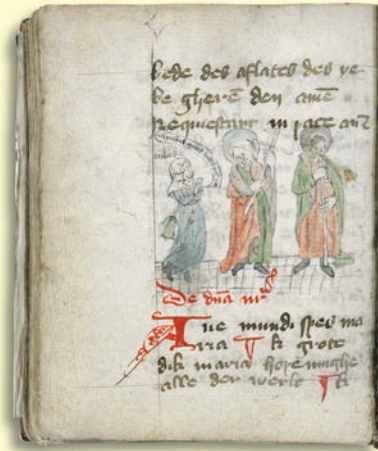 bede des aflates des ye
ke gherē den amē
Requiescant in pace amē
De dn̄a nr̄a
Aue mundi spes ma
ria Ik grote
dik maria
alle der werlt Ik